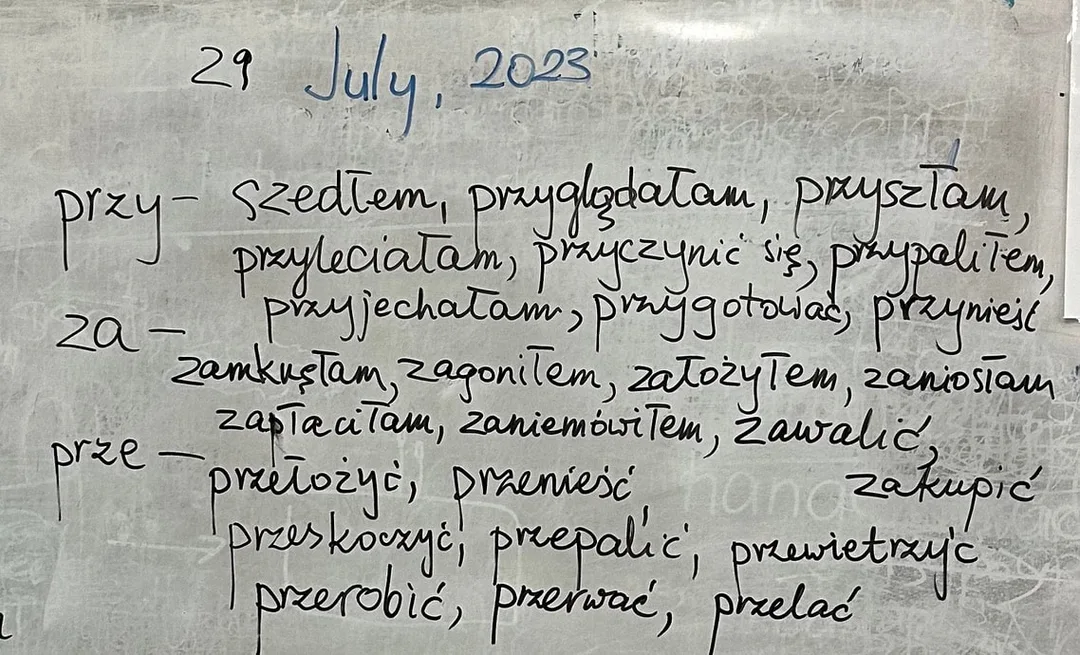 29 July, 2023
przy- szedłem, przyglądałam, przyszłam,
przyleciałam, przyczynić się, przypaliłem,
przyjechałam, przygotować, przynieść
za -
zamknęłam, zagoniłem, założyłem, zaniosłam
zapłaciłam, zaniemówiłem, zawalić,
prze - przełożyć, przenieść zakupić
przeskoczyć, przepalić, przewietrzyć
przerobić, przerwać, przelać